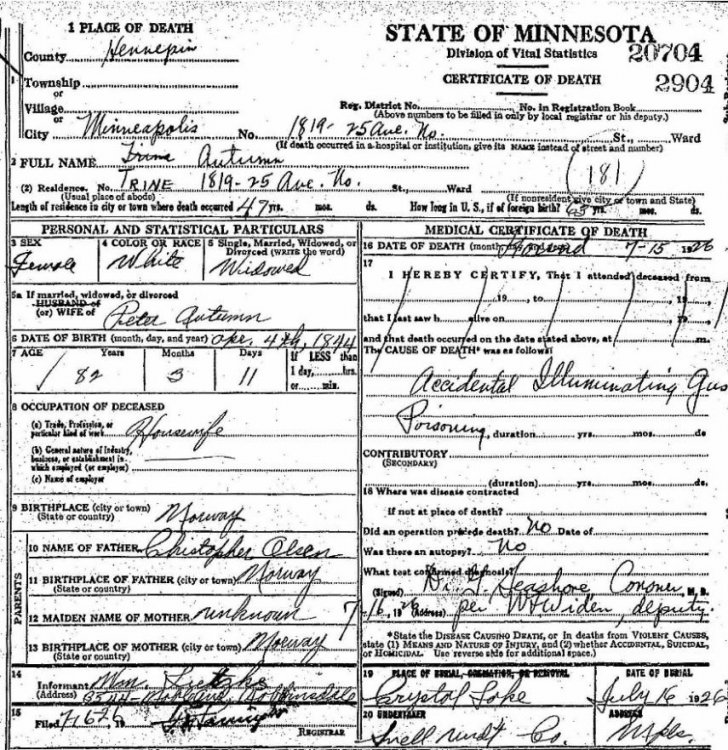 1 PLACE OF DEATH
County Hennepin
Township
or
Village
or
City Minneapolis No. 1819-25 Ave. No. St., Ward
(If death occurred in a hospital or institution, give its NAME instead of street and number)
STATE OF MINNESOTA
Division of Vital Statistics
CERTIFICATE OF DEATH
20704
2904
Reg. District No. No. in Registration Book
(Above numbers to be filled in only by local registrar or his deputy.)
2 FULL NAME Trine Autumn
181
(2) Residence. No. TRINE 1819-25 Ave. No. St., Ward
(Usual place of abode) (If nonresident give city or town and State)
Length of residence in city or town where death occurred 47 yrs. mos. ds. How long in U. S., if of foreign birth? 63 yrs. mos. ds.
PERSONAL AND STATISTICAL PARTICULARS
3 SEX 4 COLOR OR RACE 5 Single, Married, Widowed, or
Divorced (WRITE the word)
Female White Widowed
5a If married, widowed, or divorced
HUSBAND of
(or) WIFE of Peter Autumn
6 DATE OF BIRTH (month, day, and year) Apr. 4th, 1844
7 AGE Years Months Days If LESS than
1 day, hrs.
or min.
82 3 11
8 OCCUPATION OF DECEASED
(a) Trade, Profession, or
particular kind of work Housewife
(b) General nature of Industry,
business, or establishment in
which employed (or employer)
(c) Name of employer
9 BIRTHPLACE (city or town) Norway
(State or country)
PARENTS
10 NAME OF FATHER Christopher Olsen
11 BIRTHPLACE OF FATHER (city or town) Norway
(State or country)
12 MAIDEN NAME OF MOTHER unknown
13 BIRTHPLACE OF MOTHER (city or town) Norway
(State or country)
14
Informant Mrs.
(Address)
15
Filed 19
REGISTRAR
MEDICAL CERTIFICATE OF DEATH
16 DATE OF DEATH (month, Found 7-15 1926
17
I HEREBY CERTIFY, That I attended deceased from
19 , to 19
that I last saw h alive on 19
and that death occurred on the date stated above, at m.
The CAUSE OF DEATH* was as follows:
Accidental Illuminating Gas
Poisoning, duration yrs. mos. ds
CONTRIBUTORY
(SECONDARY)
(duration) yrs. mos. ds.
18 Where was disease contracted
if not at place of death?
Did an operation precede death? No Date of
Was there an autopsy? No
What test confirmed diagnosis?
(Signed) Dr. G. Seashore Coroner M. D.
7-16, 1926 (Address) per deputy.
*State the DISEASE CAUSING DEATH, or in deaths from VIOLENT CAUSES,
state (1) MEANS AND NATURE OF INJURY, and (2) whether ACCIDENTAL, SUICIDAL,
or HOMICIDAL. Use reverse side for additional space.)
19 PLACE OF BURIAL, CREMATION, OR REMOVAL DATE OF BURIAL
Crystal Lake July 16 1926
20 UNDERTAKER ADDRESS
Co. Mpls.